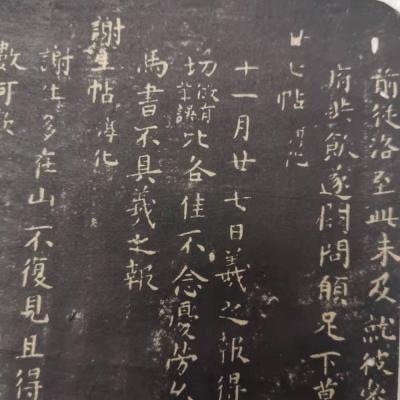 前從洛至此未及就彼參
府共飲遂闕問願足下莫
廿七帖 淳化
十一月廿七日羲之報得
切比各佳不念憂勞久
馬書不具羲之報
謝生帖 淳化
謝生多在山不復見且得
數可歎